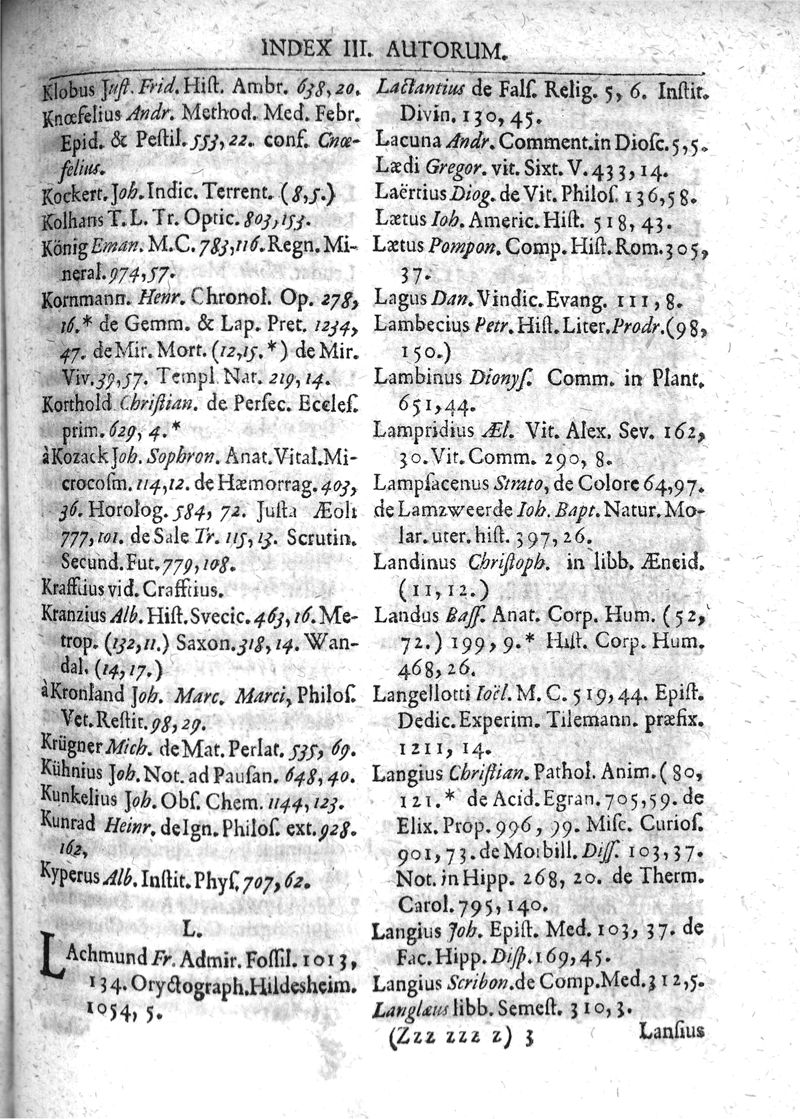 INDEX III. AUTORUM.
Klobus Juſt. Frid. Hiſt. Ambr. 638, 20.
Knœfelius Andr. Method. Med. Febr.
Epid. & Peſtil. 553, 22. conf. Cnœ-
felius.
Kockert. Joh. Indic. Terrent. (8,5.)
Kolhans T. L. Tr. Optic. 803, 153.
König Eman. M.C. 783,116. Regn. Mi-
neral. 974,57.
Kornmann. Henr. Chronol. Op. 278,
16.* de Gemm. & Lap. Pret. 1234,
47. de Mir. Mort. (12,15.*) de Mir.
Viv. 39,57. Templ Nat. 219, 14.
Korthold Chriſtian. de Perſec. Eccleſ.
prim. 629, 4.*
àKozack Joh. Sophron. Anat. Vital. Mi-
crocoſm. 114,12. de Hæmorrag. 403,
36. Horolog. 584, 72. Juſta Æoli
777, 101. de Sale Tr. 115, 13. Scrutin.
Secund. Fut. 779, 108.
Krafftius vid. Crafftius.
Kranzius Alb. Hiſt. Svecic. 463, 16. Me-
trop. (132,11.) Saxon. 318, 14. Wan-
dal. (14,17.)
àKronland Joh. Marc. Marci, Philoſ.
Vet. Reſtit. 98, 29.
Krügner Mich. de Mat. Perlat. 535, 69.
Kühnius Joh. Not. ad Pauſan. 648, 40.
Kunkelius Joh. Obſ. Chem. 1144, 123.
Kunrad Heinr. de Ign. Philoſ. ext. 928.
162,
Kyperus Alb. Inſtit. Phyſ. 707, 62.
L.
LAchmund Fr. Admir. Foſſil. 1013,
134. Oryctograph. Hildesheim.
1054, 5.
Lactantius de Falſ. Relig. 5, 6. Inſtit.
Divin. 130, 45.
Lacuna Andr. Comment. in Dioſc. 5,5.
Lædi Gregor. vit. Sixt. V. 433, 14.
Laërtius Diog. de Vit. Philoſ. 136,58.
Lætus Ioh. Americ. Hiſt. 518, 43.
Lætus Pompon. Comp. Hiſt. Rom. 305,
37.
Lagus Dan. Vindic. Evang. 111, 8.
Lambecius Petr. Hiſt. Liter. Prodr. (98,
150.)
Lambinus Dionyſ. Comm. in Plant.
651,44.
Lampridius Æl. Vit. Alex. Sev. 162,
30. Vit. Comm. 290, 8.
Lampſacenus Strato, de Colore 64,97.
de Lamzweerde Ioh. Bapt. Natur. Mo-
lar. uter. hiſt. 397, 26.
Landinus Chriſtoph. in libb. Æneid.
(11, 12.)
Landus Baſſ. Anat. Corp. Hum. (52,
72.) 199, 9.* Hiſt. Corp. Hum.
468, 26.
Langellotti Ioël. M. C. 519, 44. Epiſt.
Dedic. Experim. Tilemann. præfix.
1211, 14.
Langius Chriſtian. Pathol. Anim. (80,
121.* de Acid. Egran. 705, 59. de
Elix. Prop. 996, 99. Miſc. Curioſ.
901, 73. de Morbill. Diſſ. 103, 37.
Not. in Hipp. 268, 20. de Therm.
Carol. 795, 140.
Langius Joh. Epiſt. Med. 103, 37. de
Fac. Hipp. Diſp. 169, 45.
Langius Scribon. de Comp. Med. 312,5.
Langlæus libb. Semeſt. 310, 3.
(Zzz zzz z) 3
Lanſius